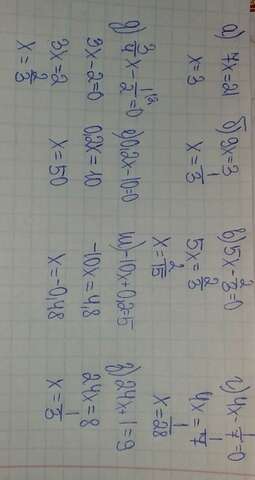 а) 7x=21
x=3
б) 9x=3
x=1/3
в) 5x-2/3=0
5x=2/3
x=2/15
г) 4x-1/7=0
4x=1/7
x=1/28
д) 3/4x-1/2=0
3x-2=0
3x=2
x=2/3
е) 0,2x-10=0
0,2x=10
x=50
ж) -10x+0,2=5
-10x=4,8
x=-0,48
з) 24x+1=9
24x=8
x=1/3